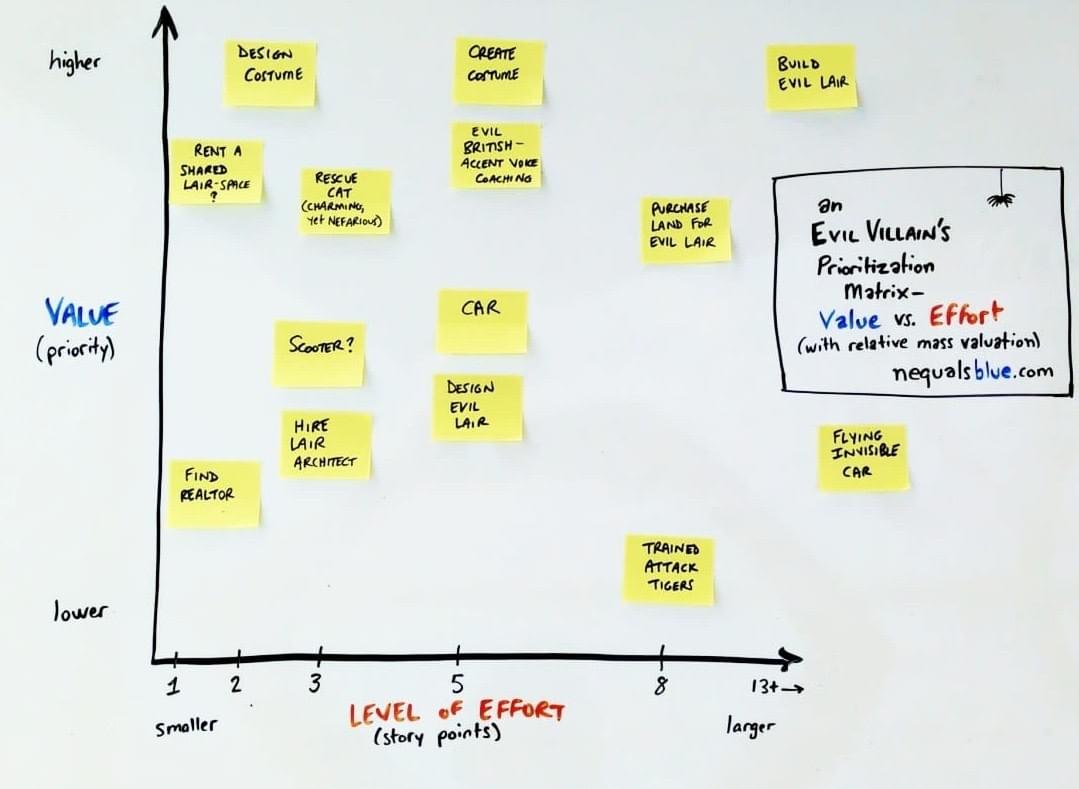 higher
DESIGN
COSTUME
CREATE
COSTUME
BUILD
EVIL LAIR
RENT A
SHARED
LAIR-SPACE
?
RESCUE
CAT
(CHARMING,
yet NEFARIOUS)
EVIL
BRITISH-
ACCENT VOICE
COACHING
PURCHASE
LAND FOR
EVIL LAIR
an
EVIL VILLAIN'S
Prioritization
Matrix-
Value vs. Effort
(with relative mass valuation)
nequalsblue.com
VALUE
(priority)
SCOOTER?
CAR
DESIGN
EVIL
LAIR
HIRE
LAIR
ARCHITECT
FIND
REALTOR
FLYING
INVISIBLE
CAR
TRAINED
ATTACK
TIGERS
lower
1 2 3 5 8 13+→
smaller
LEVEL OF EFFORT
(story points)
larger